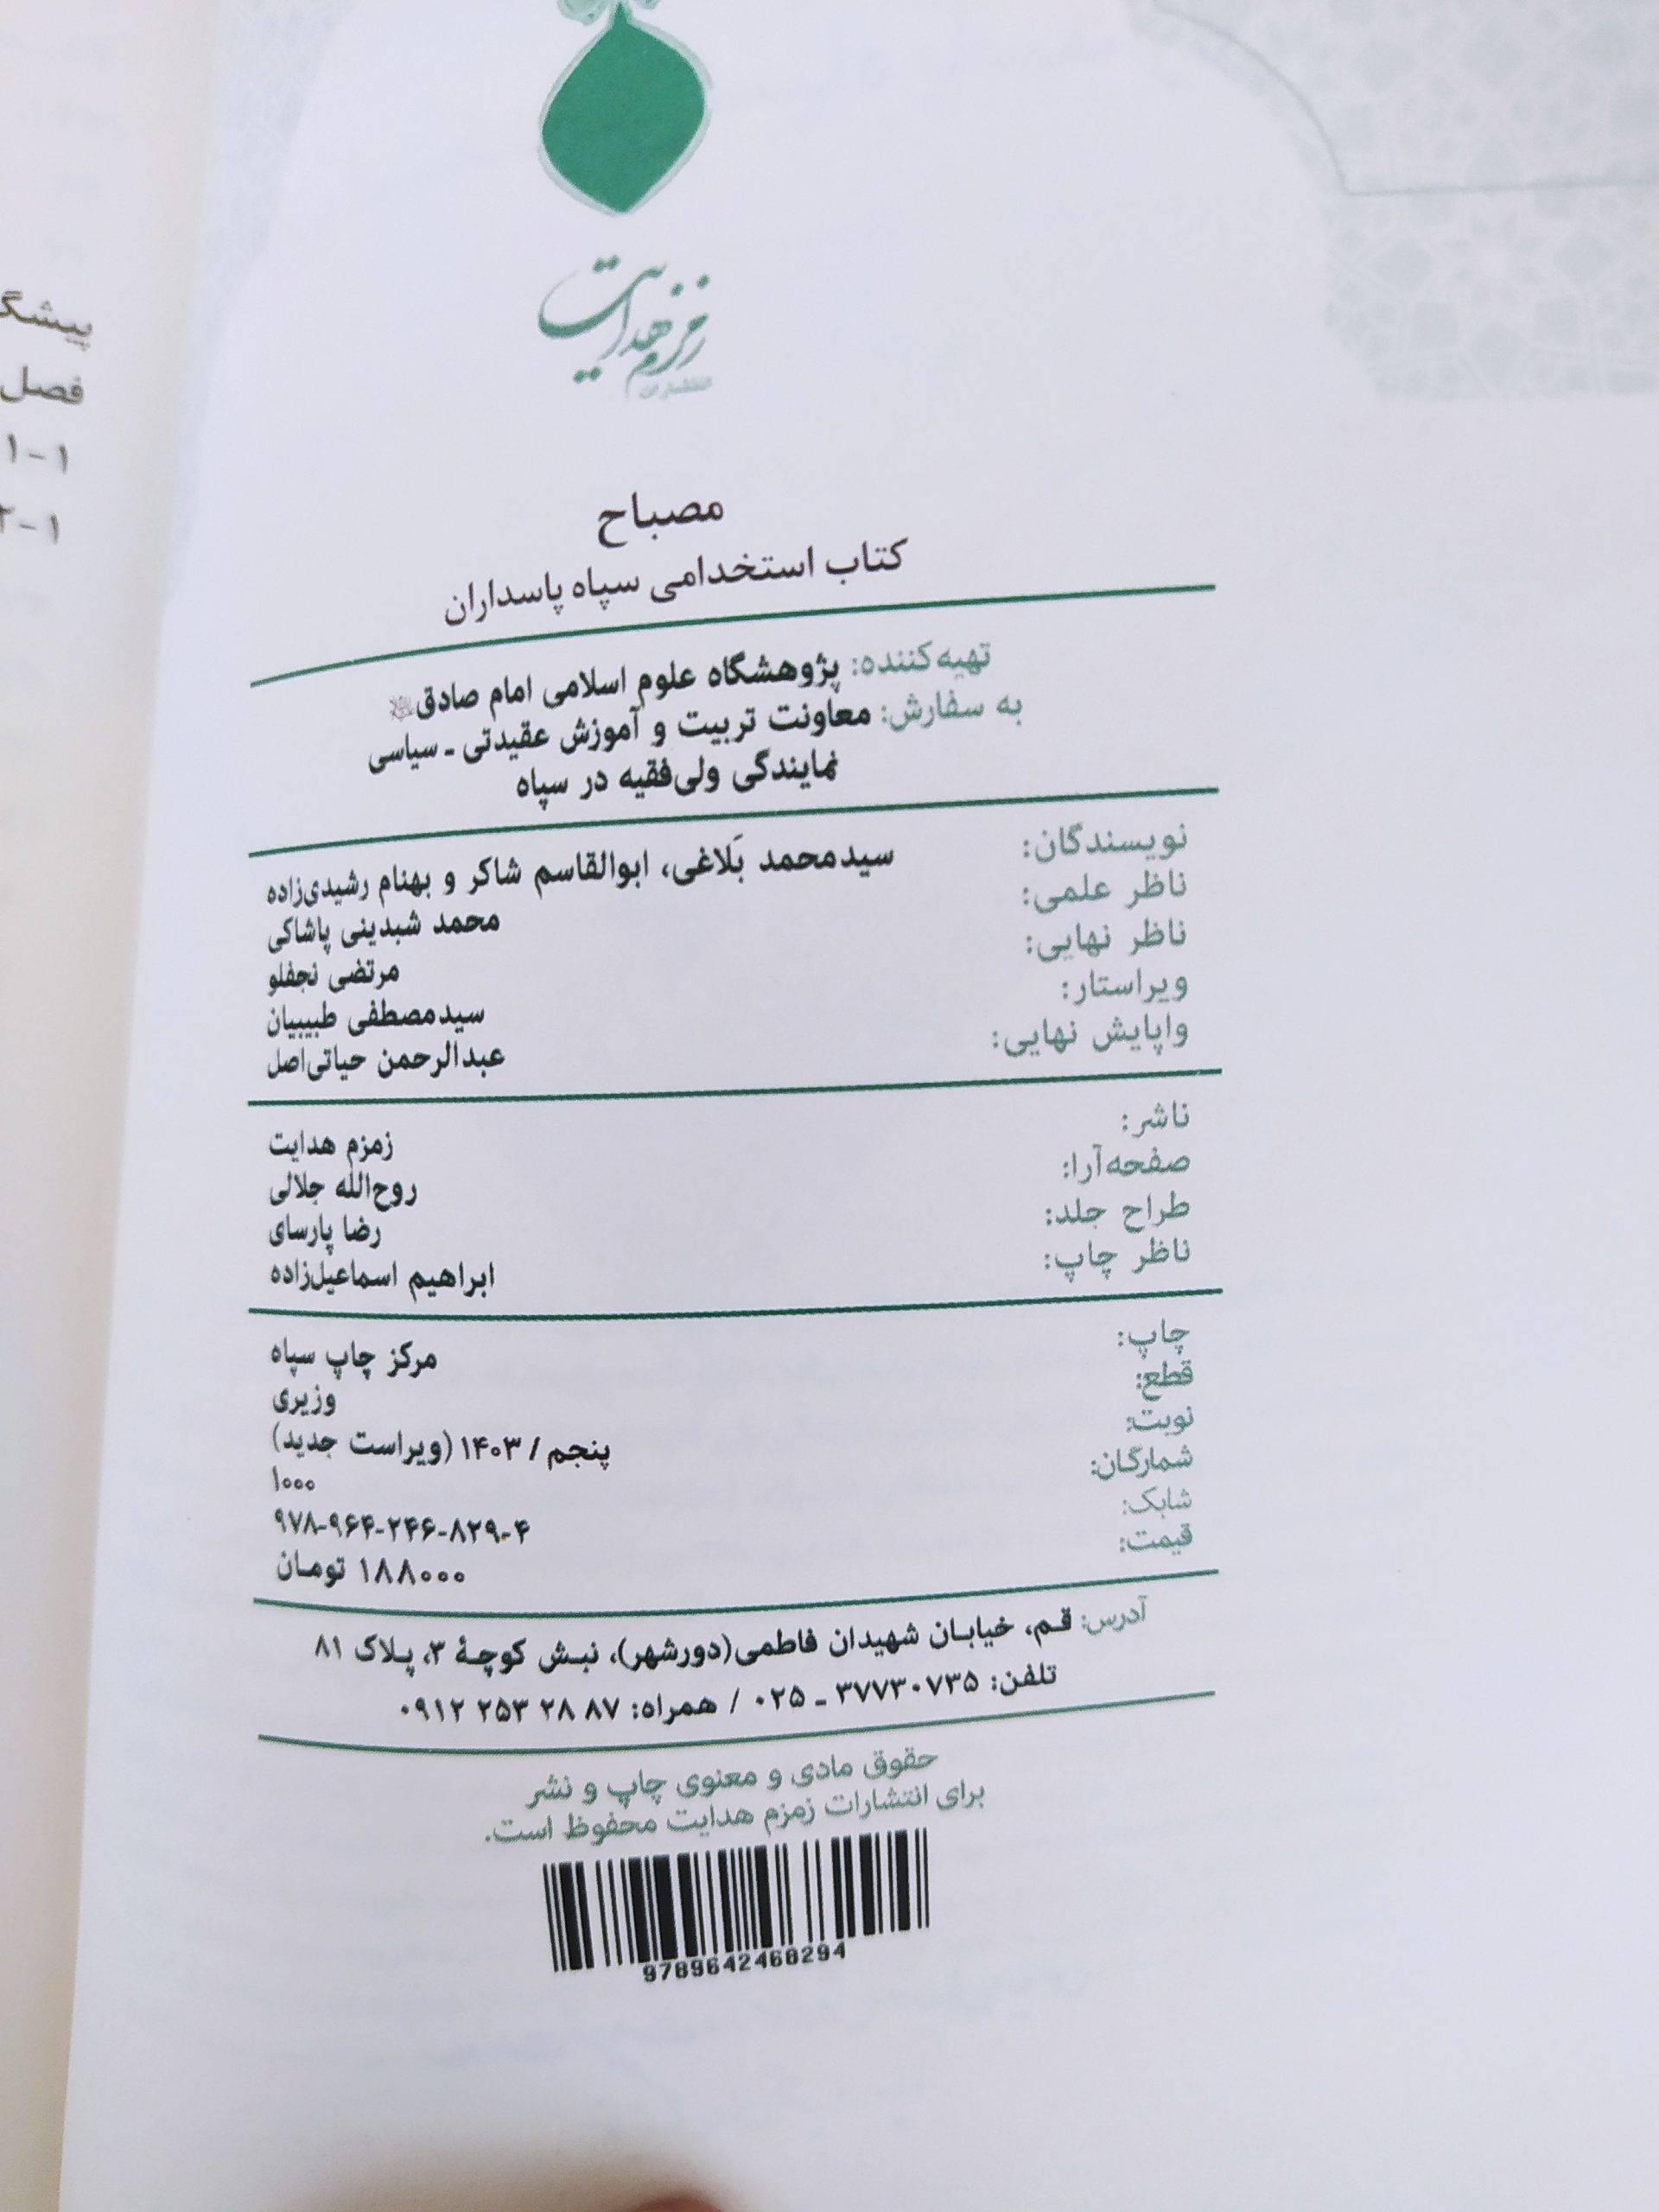 زمزم هدایت
انتشارات
مصباح
کتاب استخدامی سپاه پاسداران
تهیه‌کننده: پژوهشگاه علوم اسلامی امام صادق
به سفارش: معاونت تربیت و آموزش عقیدتی ـ سیاسی
نمایندگی ولی‌فقیه در سپاه
نویسندگان: سیدمحمد بَلاغی، ابوالقاسم شاکر و بهنام رشیدی‌زاده
ناظر علمی: محمد شبدینی پاشاکی
ناظر نهایی: مرتضی نجفلو
ویراستار: سیدمصطفی طبیبیان
واپایش نهایی: عبدالرحمن حیاتی‌اصل
ناشر: زمزم هدایت
صفحه‌آرا: روح‌الله جلالی
طراح جلد: رضا پارسای
ناظر چاپ: ابراهیم اسماعیل‌زاده
چاپ: مرکز چاپ سپاه
قطع: وزیری
نوبت: پنجم / ۱۴۰۳ (ویراست جدید)
شمارگان: ۱۰۰۰
شابک: ۹۷۸-۹۶۴-۲۴۶-۸۲۹-۴
قیمت: ۱۸۸۰۰۰ تومان
آدرس: قم، خیابان شهیدان فاطمی(دورشهر)، نبش کوچهٔ ۳، پلاک ۸۱
تلفن: ۳۷۷۳۰۷۳۵ ـ ۰۲۵ / همراه: ۸۷ ۲۸ ۲۵۳ ۰۹۱۲
حقوق مادی و معنوی چاپ و نشر
برای انتشارات زمزم هدایت محفوظ است.
9789642468294
فصل
۱-۱
۱-۲